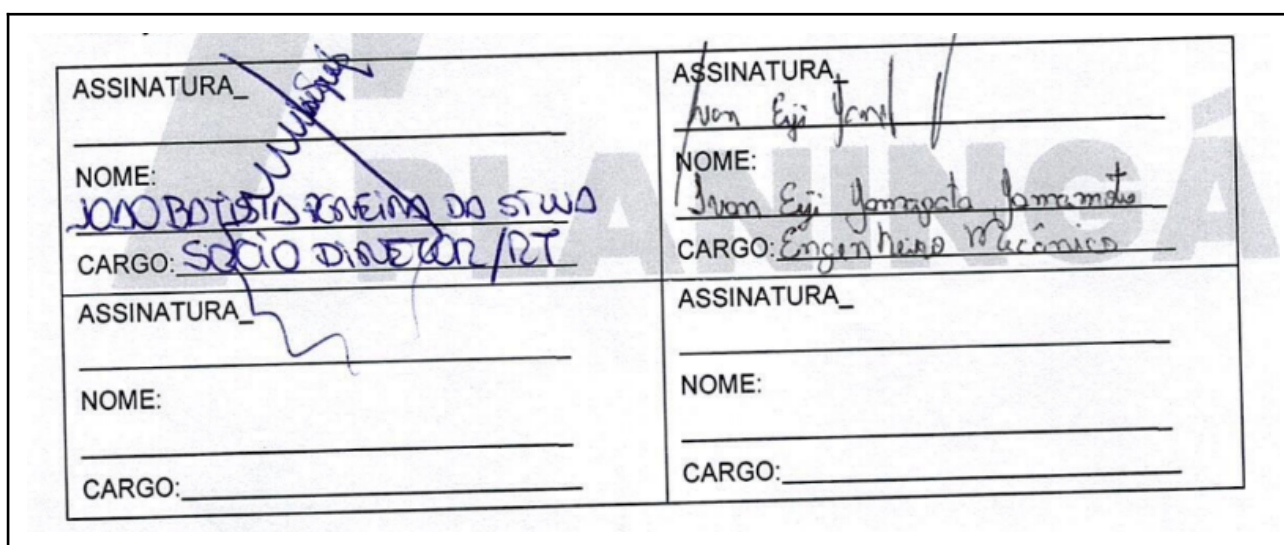 PLANINGÁ
ASSINATURA_
NOME:
JOAO BATISTA DA SILVA
CARGO: SOCIO DIRETOR/RT
ASSINATURA_
Ivan Eiji
NOME:
Ivan Eiji Yamagata Yamamoto
CARGO: Engenheiro Mecânico
ASSINATURA_
NOME:
CARGO:
ASSINATURA_
NOME:
CARGO: